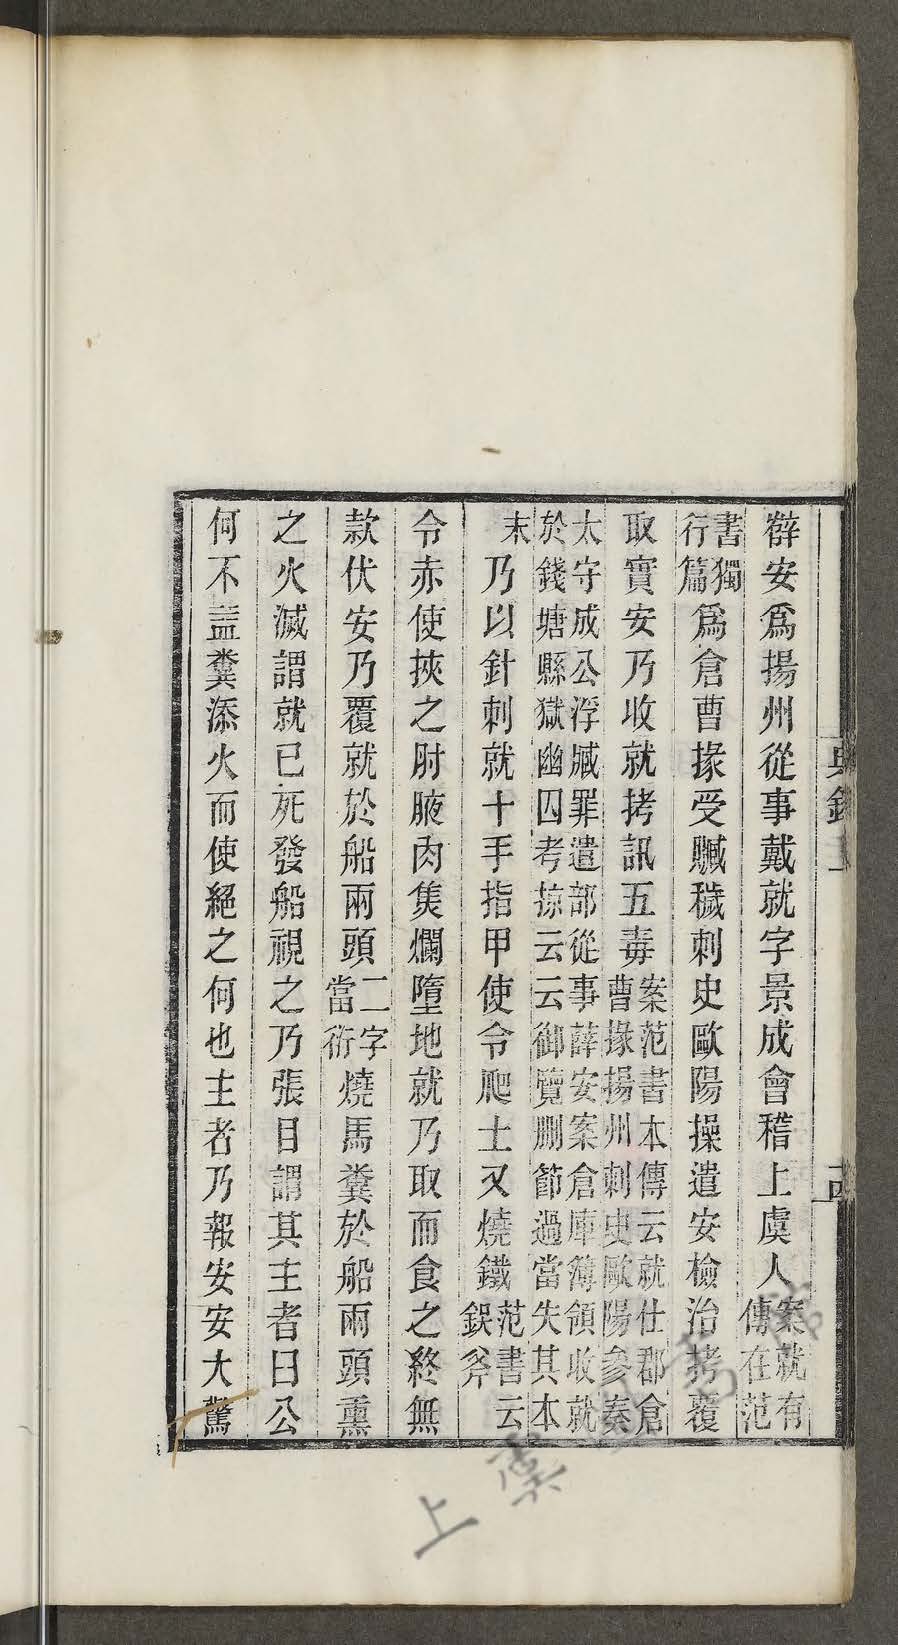 典錄
辥安爲揚州從事戴就字景成會稽上虞人案就有
傳在范
書獨
行篇爲倉曹掾受贓穢刺史歐陽操遣安檢治拷覆
取實安乃收就拷訊五毒案范書本傳云就仕郡倉
曹掾揚州刺史歐陽參奏
太守成公浮臟罪遣部從事薛安案倉庫簿領收就
於錢塘縣獄幽囚考掠云云御覽刪節過當失其本
末乃以針刺就十手指甲使令爬土又燒鐵范書云
鋘斧
令赤使挾之肘腋肉焦爛墮地就乃取而食之終無
款伏安乃覆就於船兩頭二字
當衍燒馬糞於船兩頭熏
之火滅謂就已死發船視之乃張目謂其主者曰公
何不益糞添火而使絕之何也主者乃報安安大驚
上虞